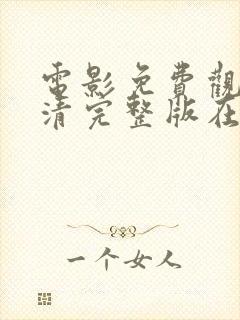 電影免費觀
清完整版在
一个女人